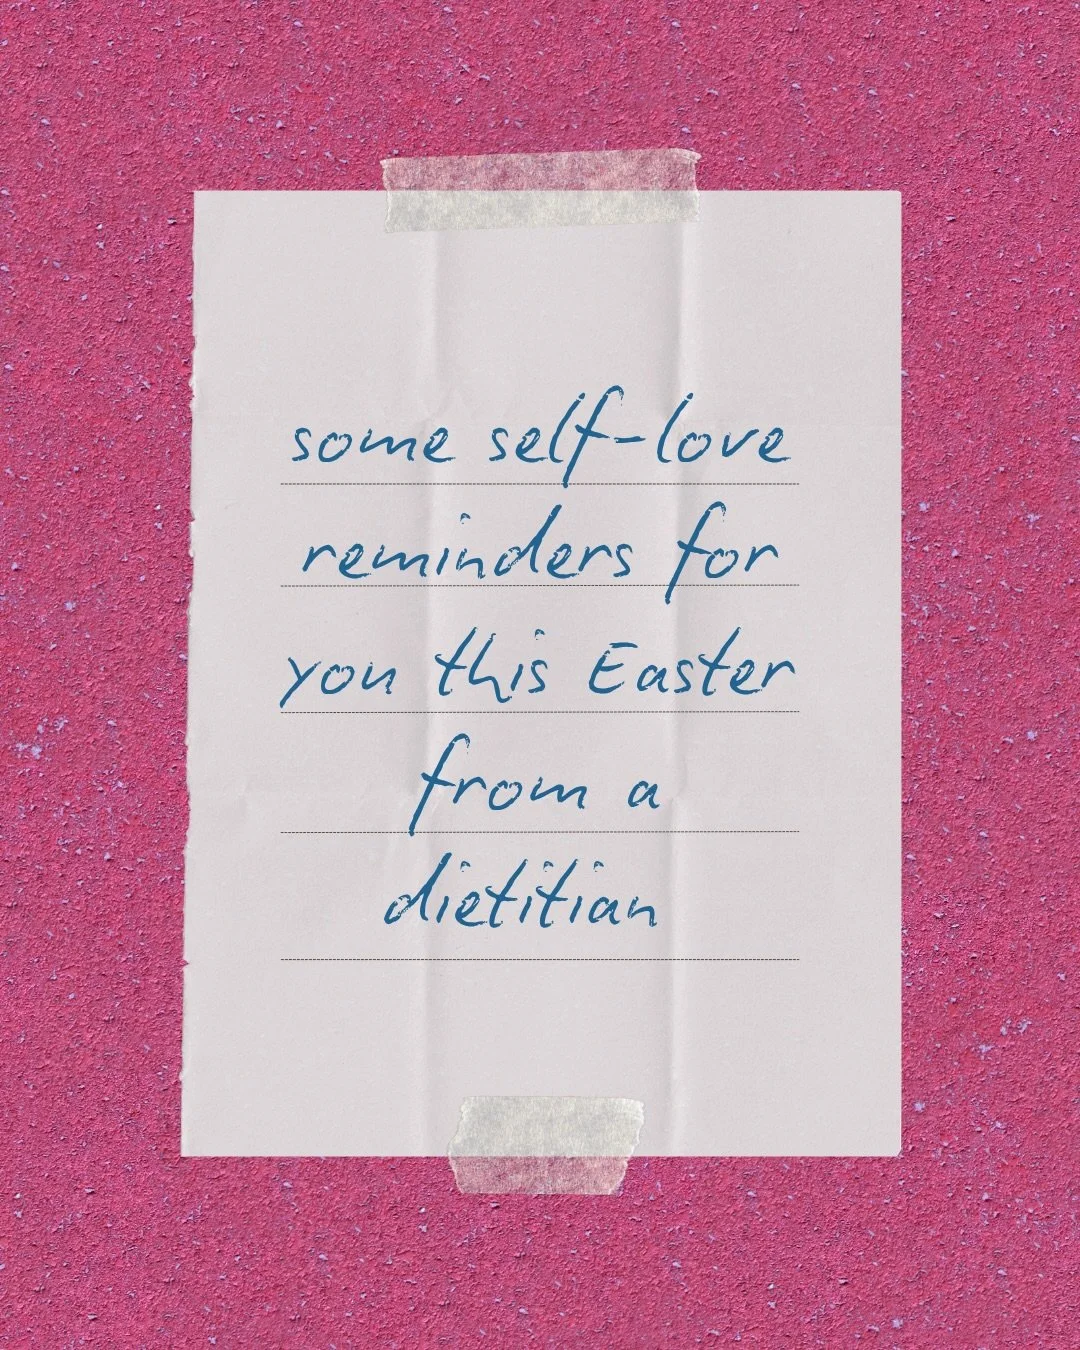 some self-love
reminders for
you this Easter
from a
dietitian